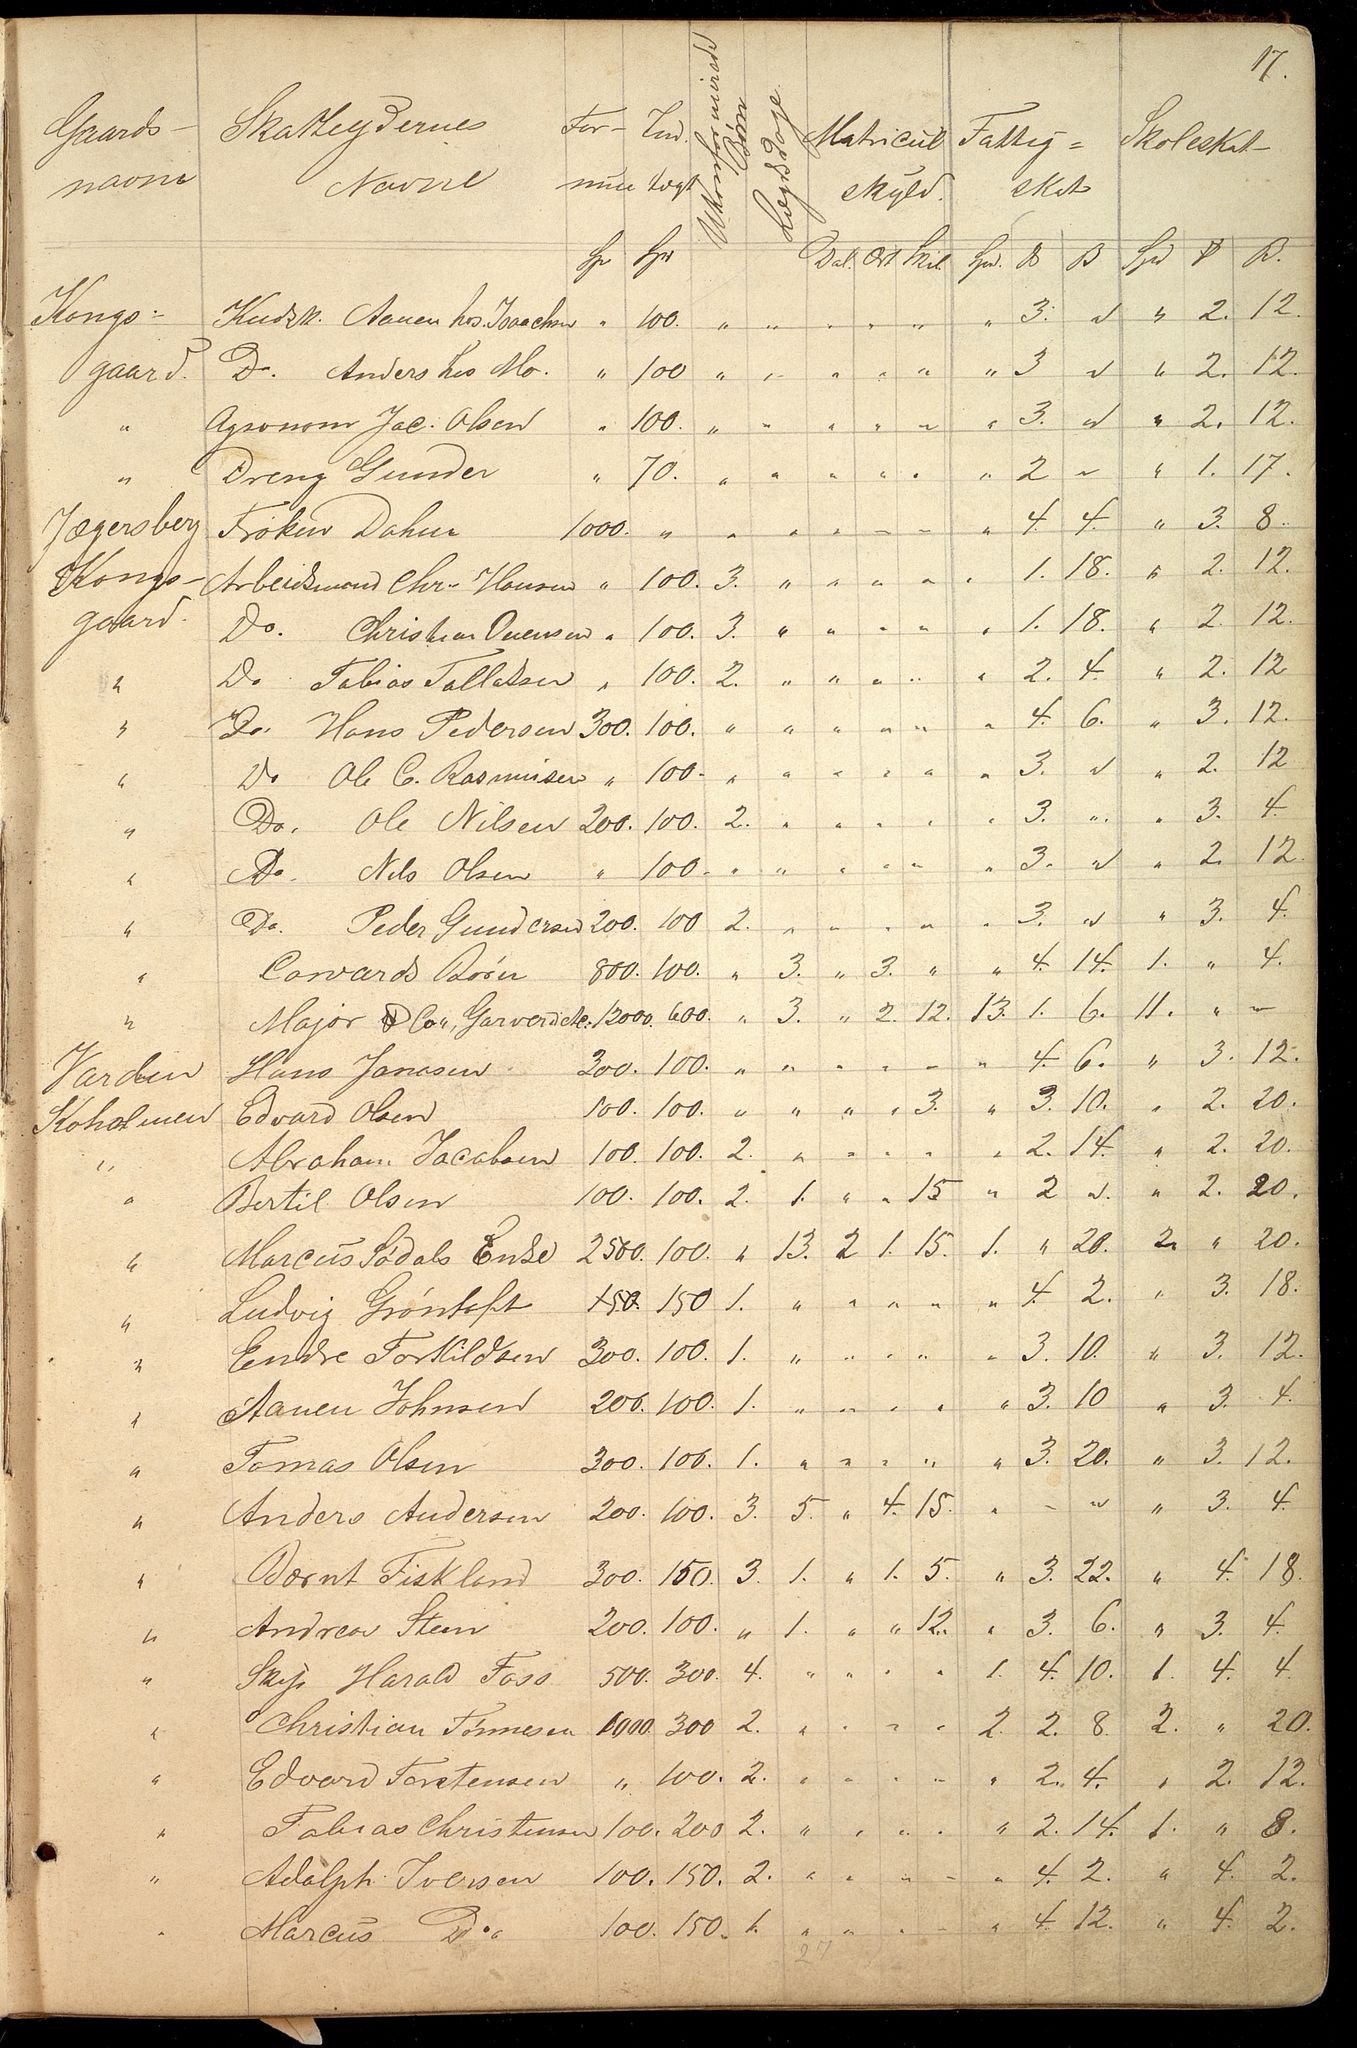 17.
Gaards- Skatteydernes For- Ind. Ukonfirmerede Børn Lægdsdage. Matricul Fattig= Skoleskat
navne Navne mue tægt skyld. skat
Spd Dal. Ort Skil Spd. B Spd B.
Kongs- Kudsk. Aanen hos. Isaachsen " 100. " " " " " " 3. " " 2. 12.
gaard. Do. Anders hos Mo. " 100 " " " " " " 3 " " 2. 12.
" Agronom Jac. Olsen " 100. " " " " " " 3. " " 2. 12.
" Dreng Gunder " 70. " " " " " " 2 " " 1. 17.
Jægersberg Frøken Dahm 1000. " " " " " " " 4. 4. " 3. 8.
Kongs- Arbeidsmand Chr. Hansen " 100. 3. " " " " " 1. 18. " 2. 12.
gaard. Do. Christian Ouensen " 100. 3. " " " " " 1. 18. " 2. 12.
" Do Tobias Tallaksen " 100. 2. " " " " " 2. 4. " 2. 12
" Do. Hans Pedersen 300. 100. " " " " " " 4. 6. " 3. 12.
" Do Ole C. Rasmusen " 100. " " " " " " 3. " " 2. 12
" Do. Ole Nilsen 200. 100. 2. " " " " " 3. " " 3. 4.
" Do. Nils Olsen " 100. " " " " " " 3. " " 2. 12.
" Do. Peder Gundersen 200. 100 2. " " " " " 3. " " 3. 4.
" Børn 800. 100. " 3. " 3. " " 4. 14. 1. " 4.
" Major Garveri 12000. 600. " 3. " 2. 12. 13. 1. 6. 11. " "
Varden Hans Jansen 300. 100. " " " " " " 4. 6. " 3. 12.
Koholmen Edvard Olsen 100. 100. " " " " 3. " 3. 10. " 2. 20.
" Abraham Jacobsen 100. 100. 2. " " " " " 2. 14. " 2. 20.
" Bertil Olsen 100. 100. 2. 1. " " 15 " 2 " " 2. 20.
" Marcus Sødals Enke 2500. 100. " 13. 2 1. 15. 1. " 20. 2. " 20.
" Ludvig Grøntoft 150. 150 1. " " " " " 4. 2. " 3. 18.
" Endre Torkildsen 300. 100. 1. " " " " " 3. 10. " 3. 12.
" Aanen Johnsen 200. 100. 1. " " " " " 3. 10 " 3. 4.
" Tomas Olsen 300. 100. 1. " " " " " 3. 20. " 3. 12.
" Anders Andersen 200. 100. 3. 5. " 4. 15. " " " " 3. 4.
" Bernt Fiskland 300. 150. 3. 1. " 1. 5. " 3. 22. " 4. 18.
" Andreas Steen 200. 100. " 1. " " 12. " 3. 6. " 3. 4.
" Skip Harald Foss 500. 300. 4. " " " " 1. 4. 10. 1. 4. 4.
" Christian Tønnesen 1000. 300 2. " " " " 2. 2. 8. 2. " 20.
" Edvard Torstensen " 100. 2. " " " " " 2. 4. " 2. 12.
" Tobias Christensen 100. 200 2. " " " " " 2. 14. 1. " 8.
" Adolph Iversen 100. 150. 2. " " " " " 4. 2. " 4. 2.
" Marcus Do 100. 150. 1. " " " " " 4. 12. " 4. 2.
27